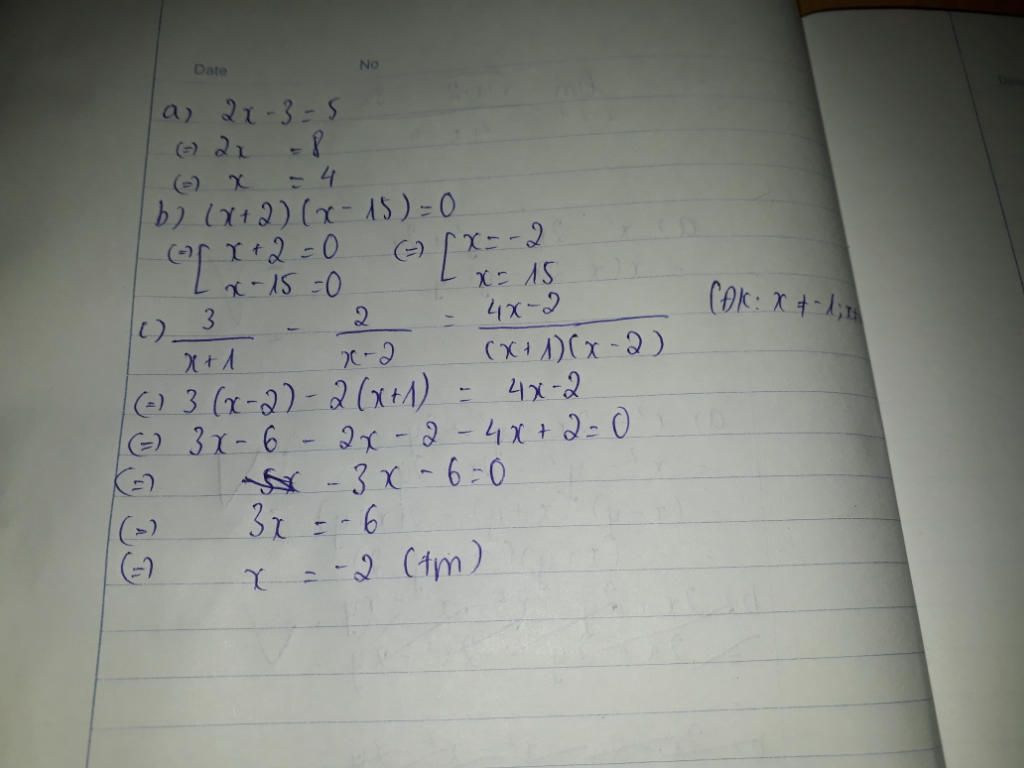 Date No
a) 2x - 3 = 5
(=) 2x = 8
(=) x = 4
b) (x+2)(x-15)=0
(=) [ x+2=0 (=) [ x=-2
x-15=0 x=15
c) 3/(x+1) - 2/(x-2) = (4x-2)/((x+1)(x-2)) (ĐK: x ≠ -1; x≠
(=) 3(x-2) - 2(x+1) = 4x-2
(=) 3x - 6 - 2x - 2 - 4x + 2 = 0
(=) - 3x - 6 = 0
(=) 3x = -6
(=) x = -2 (tm)